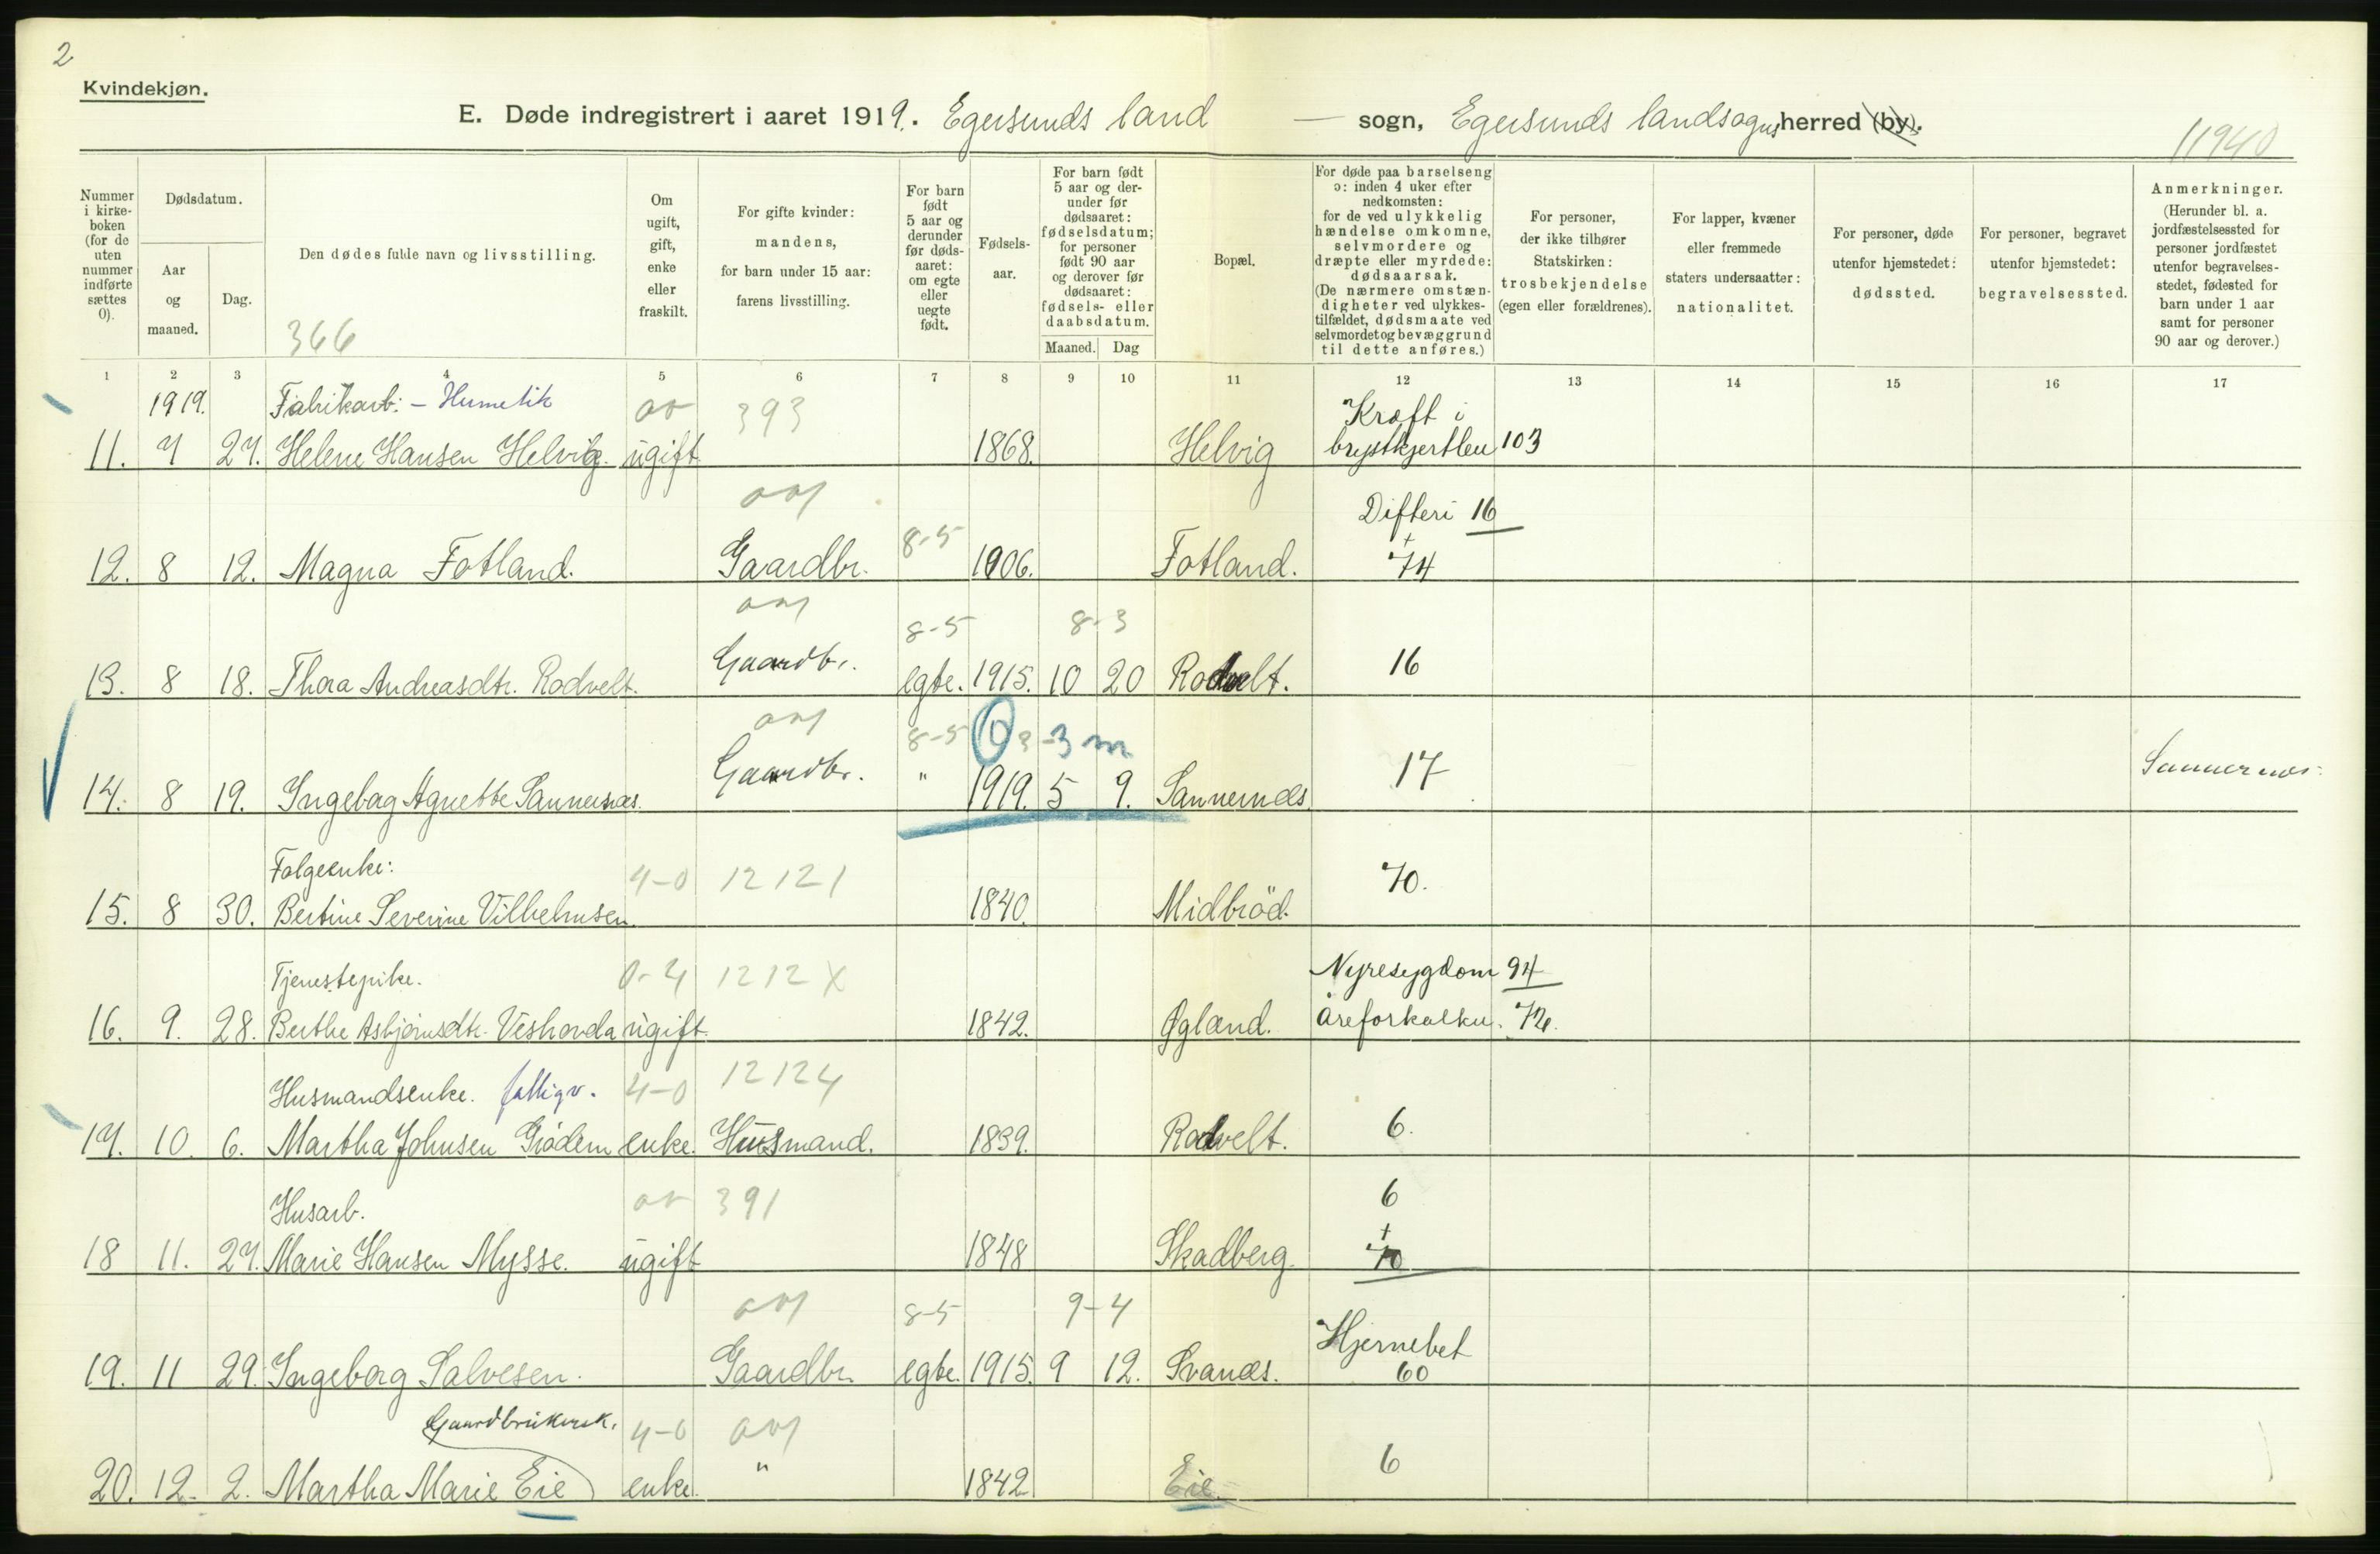 2
Kvindekjøn.
E. Døde indregistrert i aaret 1919. Egersunds land — sogn, Egersunds landsogns herred (by).
11940
Nummer i kirke-boken (for de uten nummer indførte sættes 0).
Dødsdatum.
Aar og maaned.
Dag.
Den dødes fulde navn og livsstilling.
366
Om ugift, gift, enke eller fraskilt.
For gifte kvinder: mandens, for barn under 15 aar: farens livsstilling.
For barn født 5 aar og derunder før døds-aaret: om egte eller uegte født.
Fødsels-aar.
For barn født 5 aar og der-under før dødsaaret: fødselsdatum; for personer født 90 aar og derover før dødsaaret: fødsels- eller daabsdatum.
Maaned. Dag
Bopæl.
For døde paa barselseng ɔ: inden 4 uker efter nedkomsten: for de ved ulykkelig hændelse omkomne, selvmordere og dræpte eller myrdede: dødsaarsak. (De nærmere omstæn-digheter ved ulykkes-tilfældet, dødsmaate ved selvmordet og bevæggrund til dette anføres.)
For personer, der ikke tilhører Statskirken: trosbekjendelse (egen eller forældrenes).
For lapper, kvæner eller fremmede staters undersaatter: nationalitet.
For personer, døde utenfor hjemstedet: dødssted.
For personer, begravet utenfor hjemstedet: begravelsessted.
Anmerkninger. (Herunder bl. a. jordfæstelsessted for personer jordfæstet utenfor begravelses-stedet, fødested for barn under 1 aar samt for personer 90 aar og derover.)
1 2 3 4 5 6 7 8 9 10 11 12 13 14 15 16 17
1919. Fabrikarb: – Hermetik 393 Kræft i
11. 7 27. Helene Hansen Helvig. ugift 1868. Helvig brystkjertlen 103
Difteri 16
8-5 +
12. 8 12. Magna Fotland. Gaardbr. 1906. Fotland. 74
8-5 8-3
13. 8 18. Thora Andreasdtr. Rodvelt. Gaardbr. egte. 1915. 10 20 Rodvelt. 16
8-5 0 3 -3 m
14. 8 19. Ingeborg Agnethe Sannernæs. Gaardbr. " 1919. 5 9. Sannernæs. 17 Sannernæs.
Folgeenke: 4-0 12121
15. 8 30. Bertine Severine Vilhelmsen. 1840. Midbröd. 70.
Tjenestepike. 0-4 1212X Nyresygdom 94
16. 9. 28. Berthe Asbjörnsdtr. Veshovda ugift. 1842. Øgland. Åreforkalkn. 72.
Husmandsenke. fattigv. 4-0 12124
17. 10. 6. Martha Johnsen Grödem enke. Husmand. 1839. Rodvelt. 6.
Husarb. 391 6
+
18 11. 27. Marie Hansen Mysse. ugift 1848 Skadberg. 70
8-5 9-4 Hjernebet
19. 11 29. Ingeborg Salvesen. Gaardbr. egte. 1915. 9 12. Svanæs. 60
Gaardbrukersk. 4-0
20. 12. 2. Martha Marie Eie enke. " 1842 Eie. 6